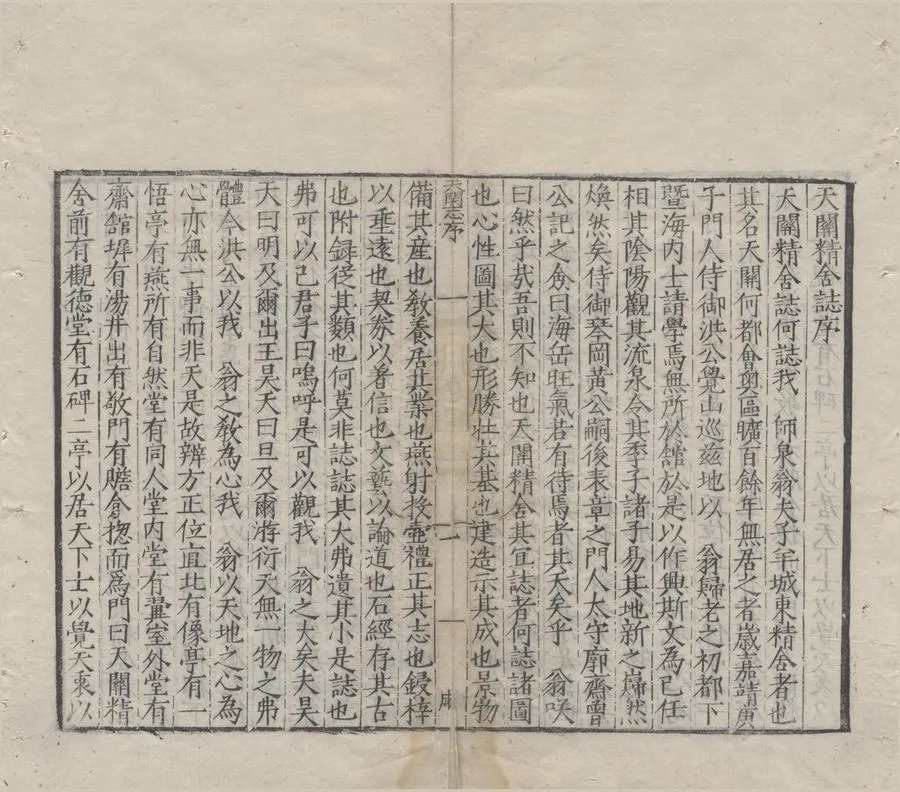 天關精舍誌序
天關精舍誌何誌我師泉翁夫子羊城東精舍者也
其名天關何都會奧區曠百餘年無居之者歲嘉靖庚
子門人侍御洪公覺山巡茲地以 翁歸老之初都下
暨海內士請學焉無所於舘於是以作興斯文為已任
相其陰陽觀其流泉令其季子諸子易其地新之巋然
煥然矣侍御琴岡黃公嗣後表章之門人太守廓齋曾
公記之僉曰海岳旺氣若有待焉者其天矣乎 翁咲
曰然乎哉吾則不知也天關精舍其冝誌者何誌諸圖
也心性圖其大也形勝壮其基也建造示其成也景物
天關志序
一
備其産也敎養居其業也燕射投壷禮正其志也鋟梓
以垂遠也契券以著信也文藝以論道也石經存其古
也附録従其類也何莫非誌誌其大弗遺其小是誌也
弗可以已君子曰嗚呼是可以觀我 翁之大矣夫昊
天曰明及爾出王昊天曰旦及爾游衍天無一物之弗
體今洪公以我 翁之敎為心我 翁以天地之心為
心亦無一事而非天是故辨方正位直北有像亭有一
悟亭有燕所有自然堂有同人堂內堂有爨室外堂有
齋舘墀有湯井出有敬門有贍倉揔而爲門曰天關精
舍前有觀德堂有石碑二亭以居天下士以覺天衷以